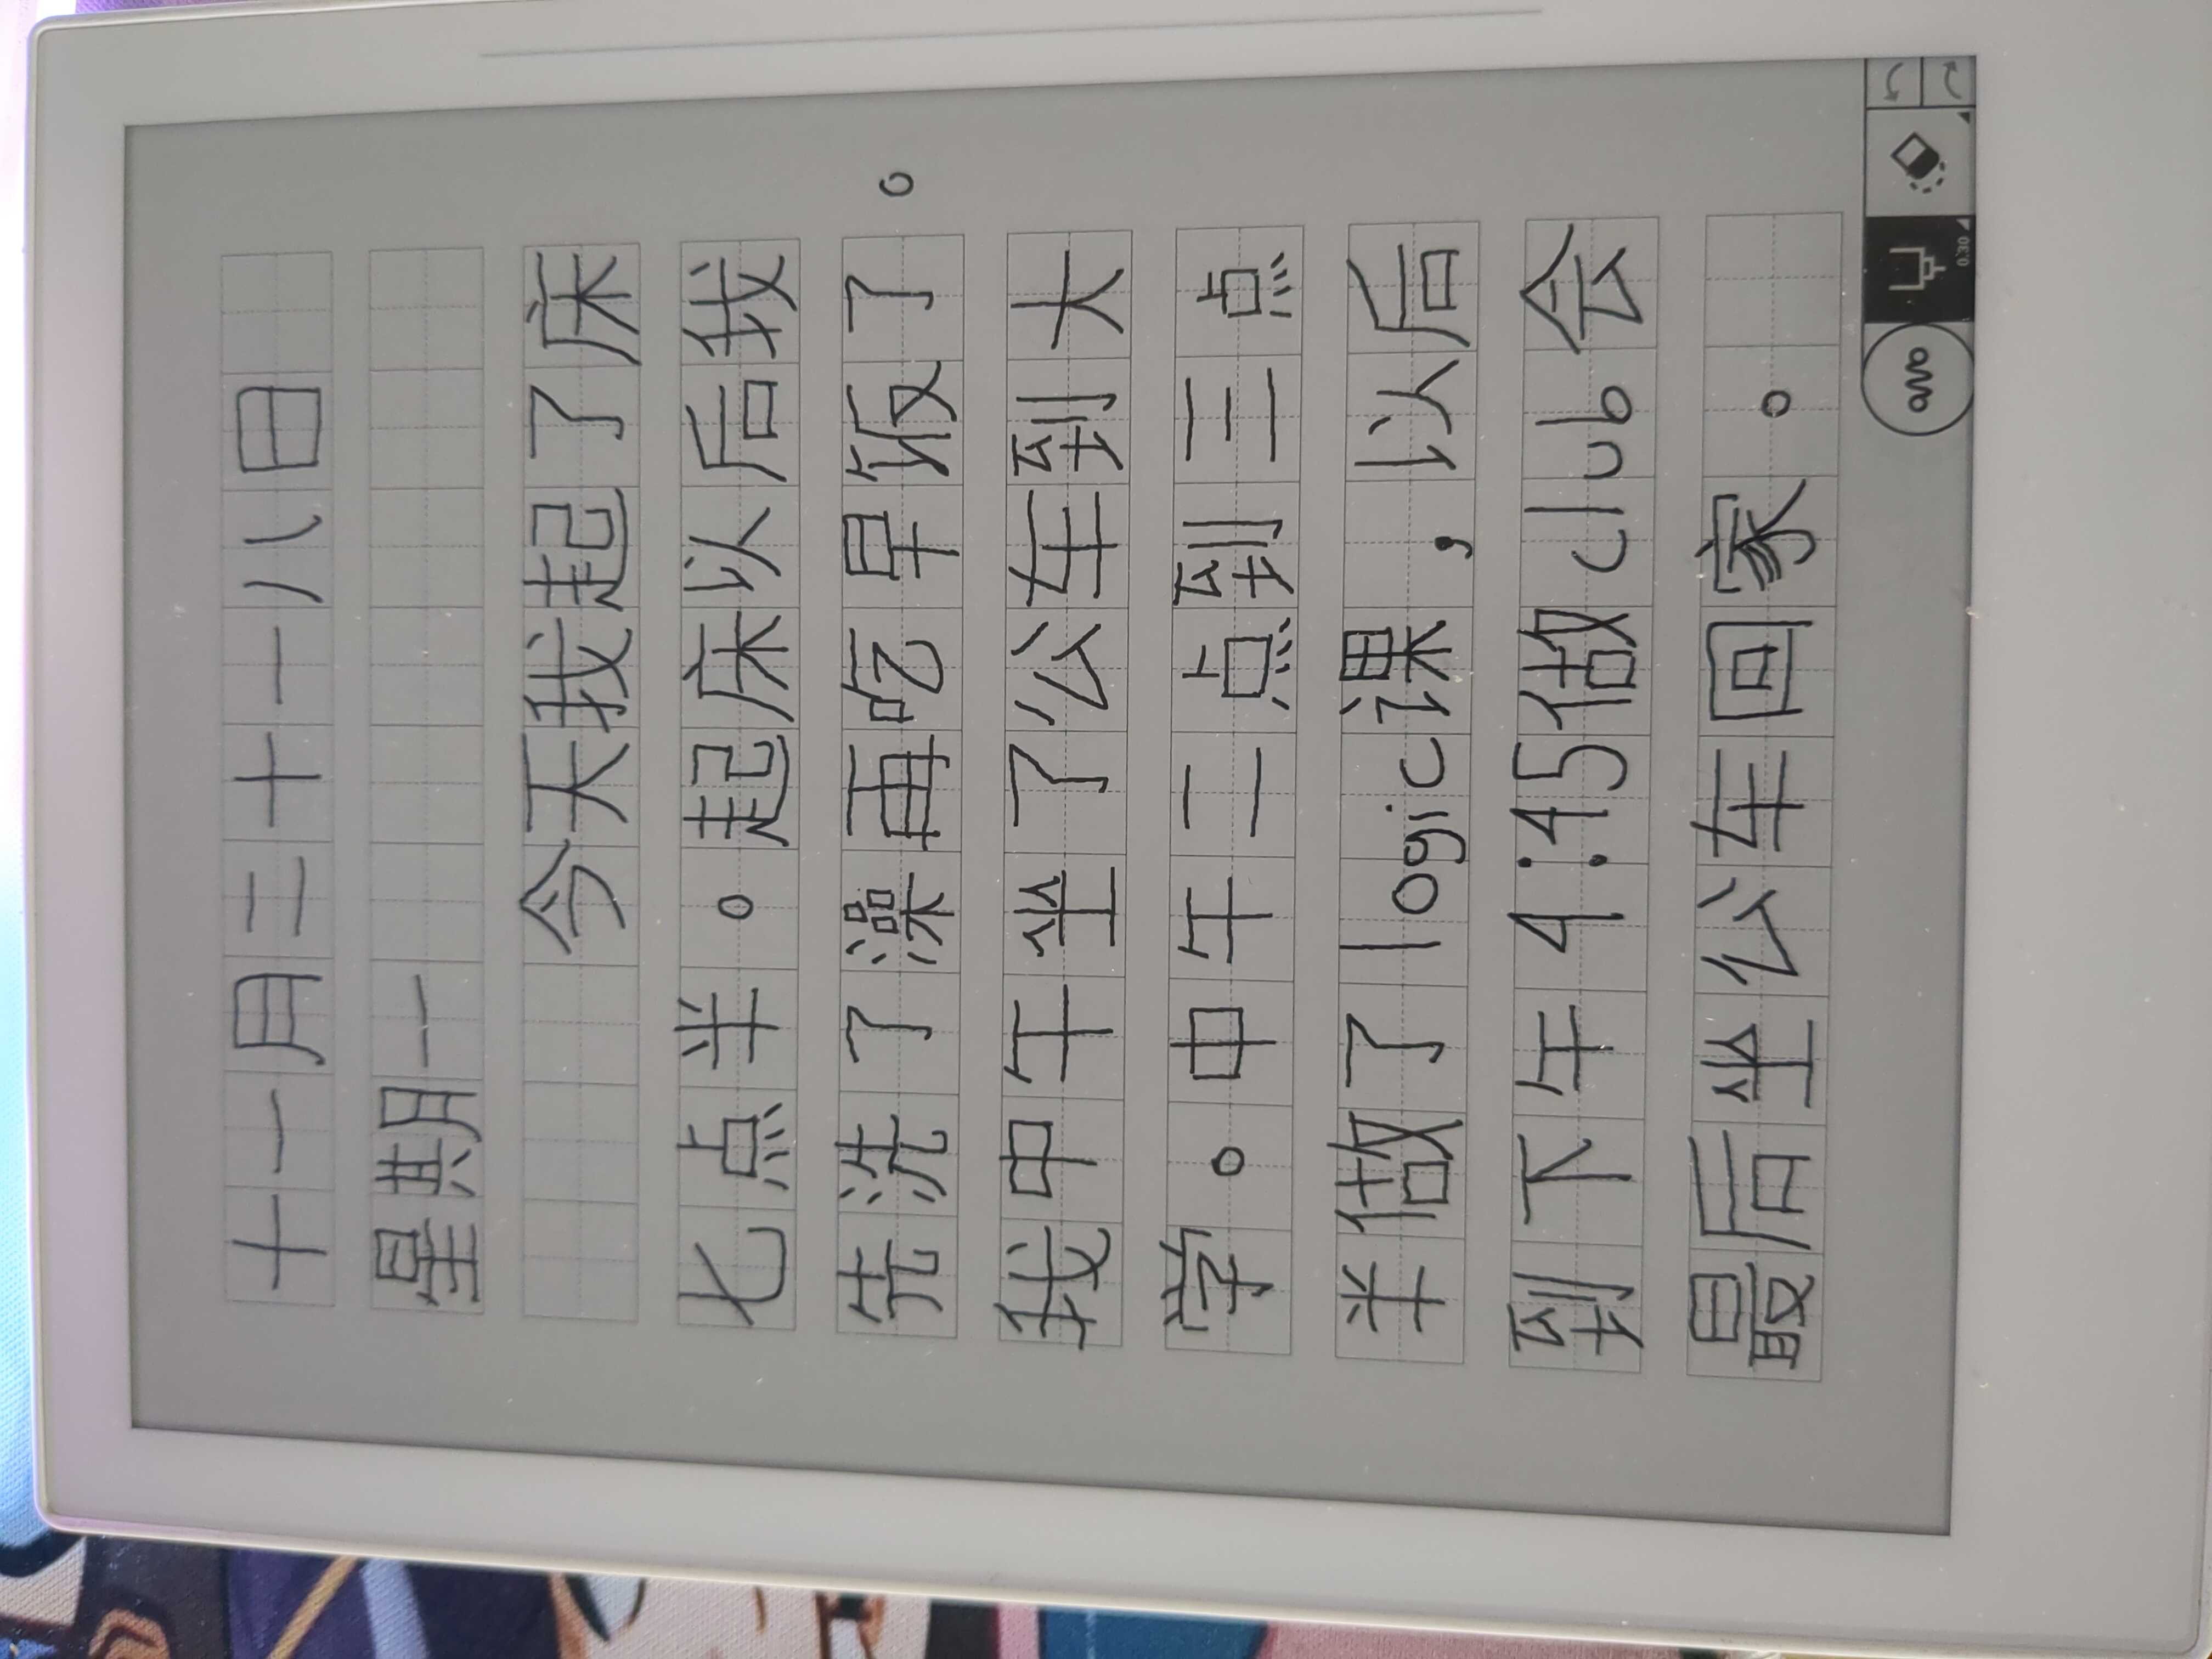 十一月二十一八日
星期一
今天我起了床
七点半。起床以后我
先洗了澡再吃早饭了。
我中午坐了公车到大
学。中午二点到三点
半做了logic课,以后
到下午4:45做club会
最后坐公车回家。
0.30